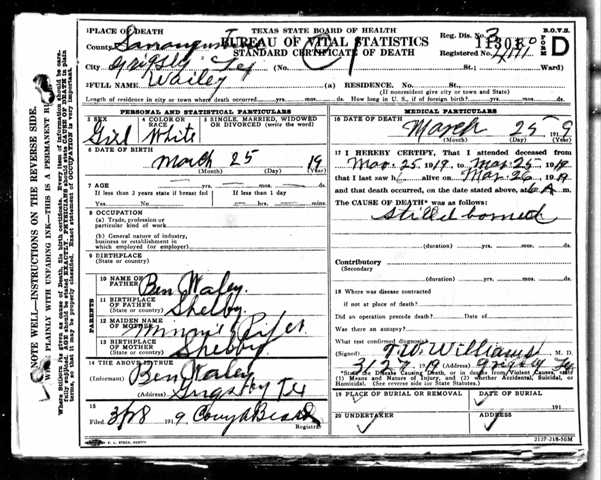 1 PLACE OF DEATH
TEXAS STATE BOARD OF HEALTH
BUREAU OF VITAL STATISTICS
STANDARD CERTIFICATE OF DEATH
Reg. Dis. No. 3
Registered No.
B.O.V.S.
FORM D
County
City Grigsby Tex (No. St. Ward)
2 FULL NAME Wailey (a) RESIDENCE, No. St.
(If nonresident give city or town and State)
Length of residence in city or town where death occurred yrs. mos. ds. How long in U. S., if of foreign birth? yrs. mos. ds.
PERSONAL AND STATISTICAL PARTICULARS
3 SEX
Girl
4 COLOR OR RACE
White
5 SINGLE, MARRIED, WIDOWED OR DIVORCED (write the word)
6 DATE OF BIRTH
March 25 19
(Month) (Day) (Year)
7 AGE
If less than 2 years state if breast fed
Yes No
If less than 1 day
hrs. min.
8 OCCUPATION
(a) Trade, profession or particular kind of work
(b) General nature of industry, business or establishment in which employed (or employer)
9 BIRTHPLACE
(State or country)
PARENTS
10 NAME OF FATHER Ben Waley
11 BIRTHPLACE OF FATHER Shelby
(State or country)
12 MAIDEN NAME OF MOTHER Minnie
13 BIRTHPLACE OF MOTHER Shelby
(State or country)
14 THE ABOVE IS TRUE
(Informant) Ben Waley
(Address) Tex
15
Filed 3/28 191 9
Registrar
MEDICAL PARTICULARS
16 DATE OF DEATH
March 25 191 9
(Month) (Day) (Year)
17 I HEREBY CERTIFY, That I attended deceased from
Mar. 25 1919, to Mar. 25 1919
that I last saw h alive on Mar. 26, 1919
and that death occurred, on the date stated above, at 6 A m.
The CAUSE OF DEATH* was as follows:
Stilled borned
(duration) yrs. mos. ds.
Contributory
(Secondary
(duration) yrs. mos. ds.
18 Where was disease contracted
if not at place of death?
Did an operation precede death? Date of
Was there an autopsy?
What test confirmed diagnosis?
(Signed) T. W. Williams M. D.
1919 (Address) Grigsby Tex
*State the Disease Causing Death, or in deaths from Violent Causes, state (1) Means and Nature of Injury, and (2) whether Accidental, Suicidal, or Homicidal. (See reverse side for State Statutes.)
19 PLACE OF BURIAL OR REMOVAL
DATE OF BURIAL
191
20 UNDERTAKER
ADDRESS
2137-318-50M
NOTE WELL—INSTRUCTIONS ON THE REVERSE SIDE.
PLAINLY WITH UNFADING INK—THIS IS A PERMANENT